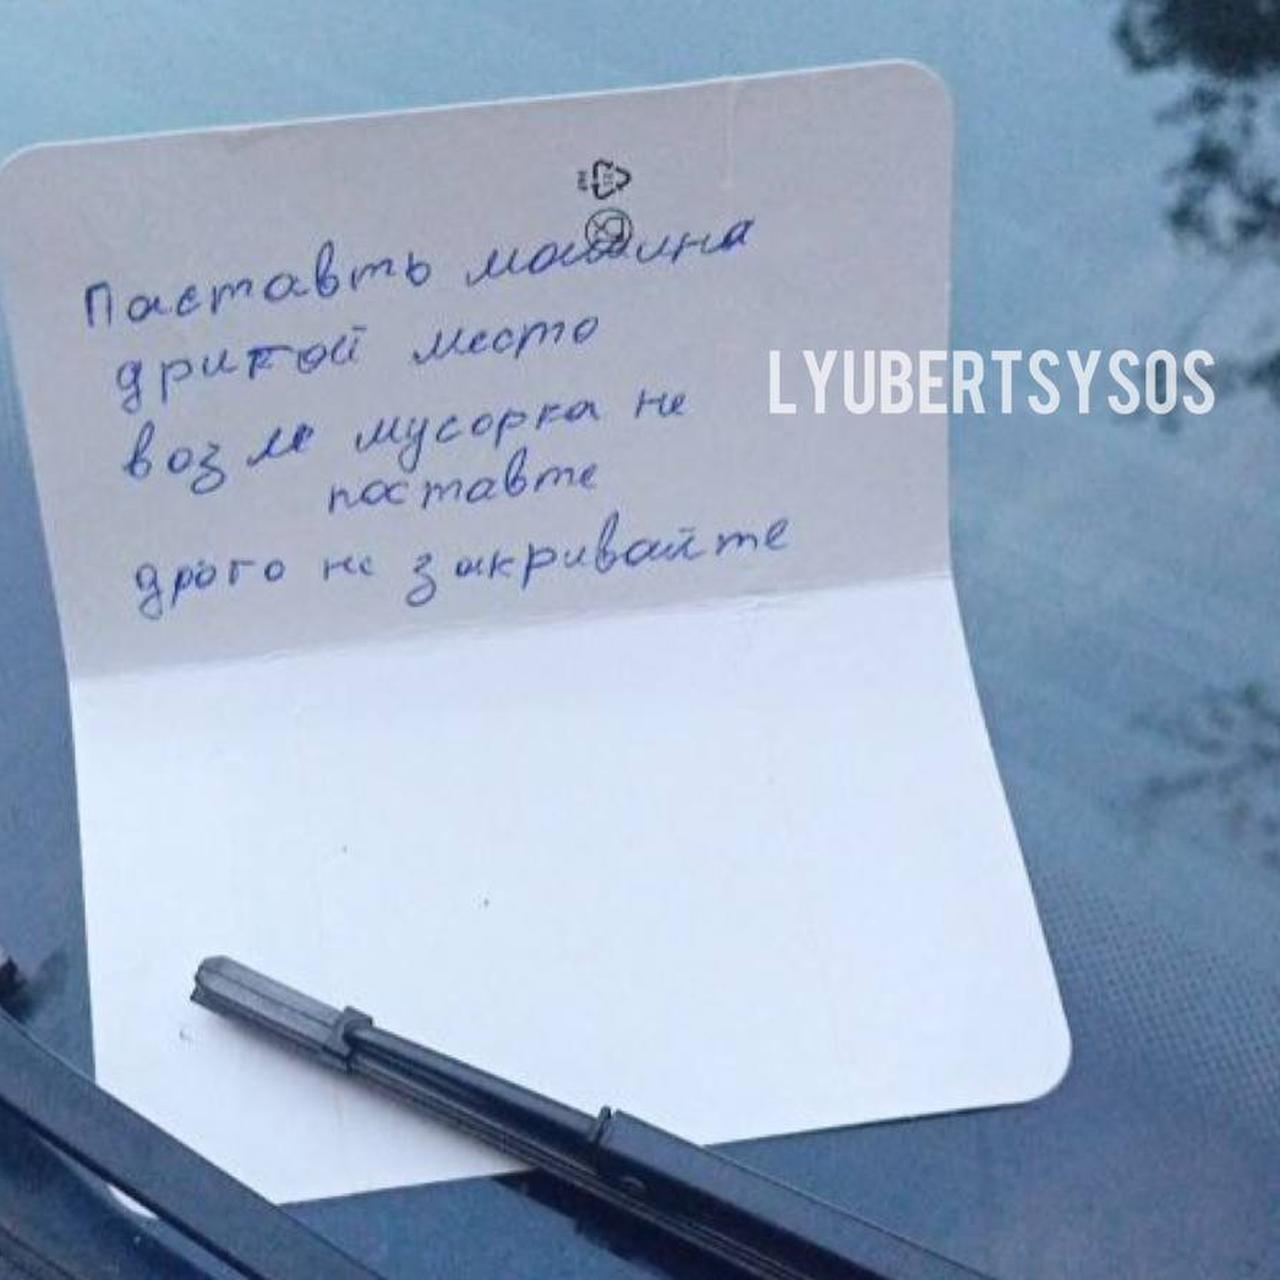 Паставть машина
дрикой место
возле мусорка не
поставте
дрого не закривайте
LYUBERTSYSOS